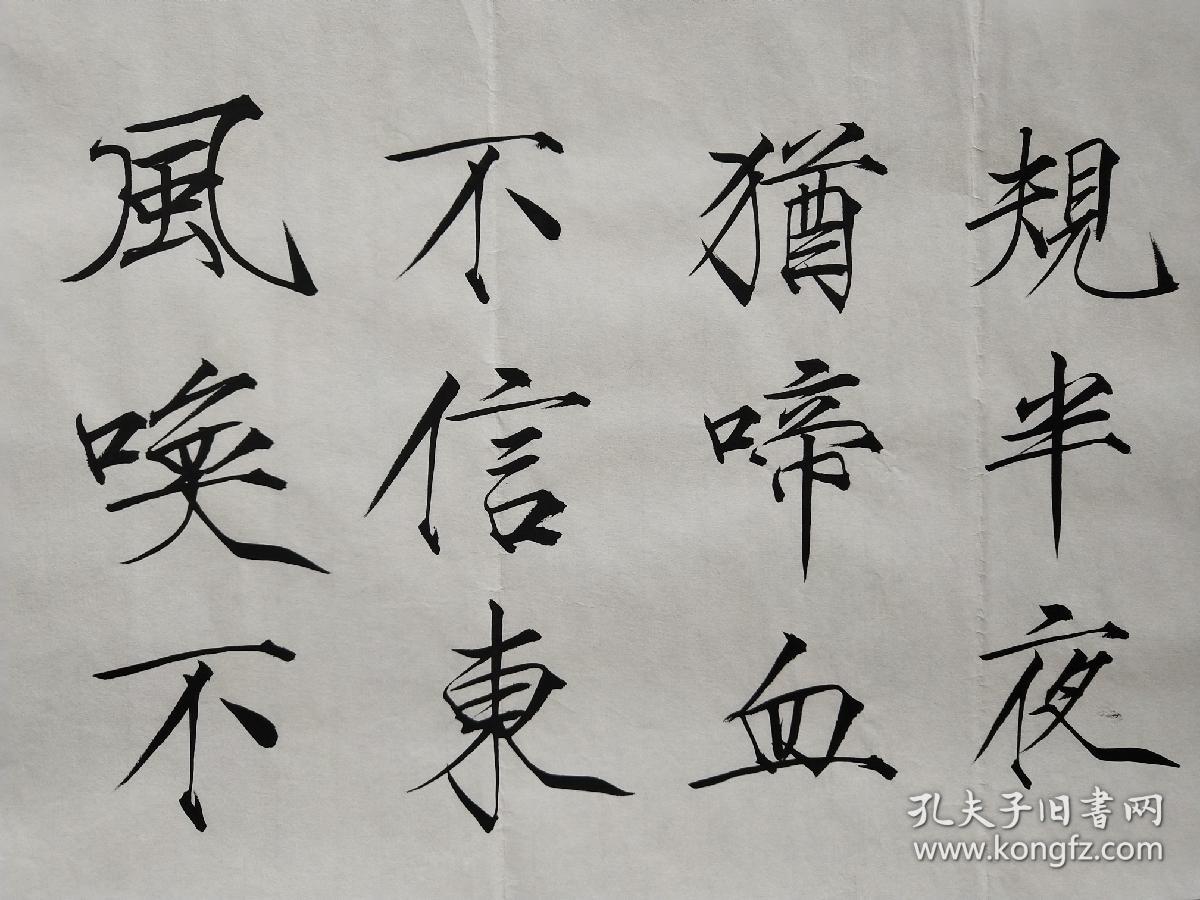 規半夜
猶啼血
不信東
風喚不
孔夫子旧書网
www.kongfz.com